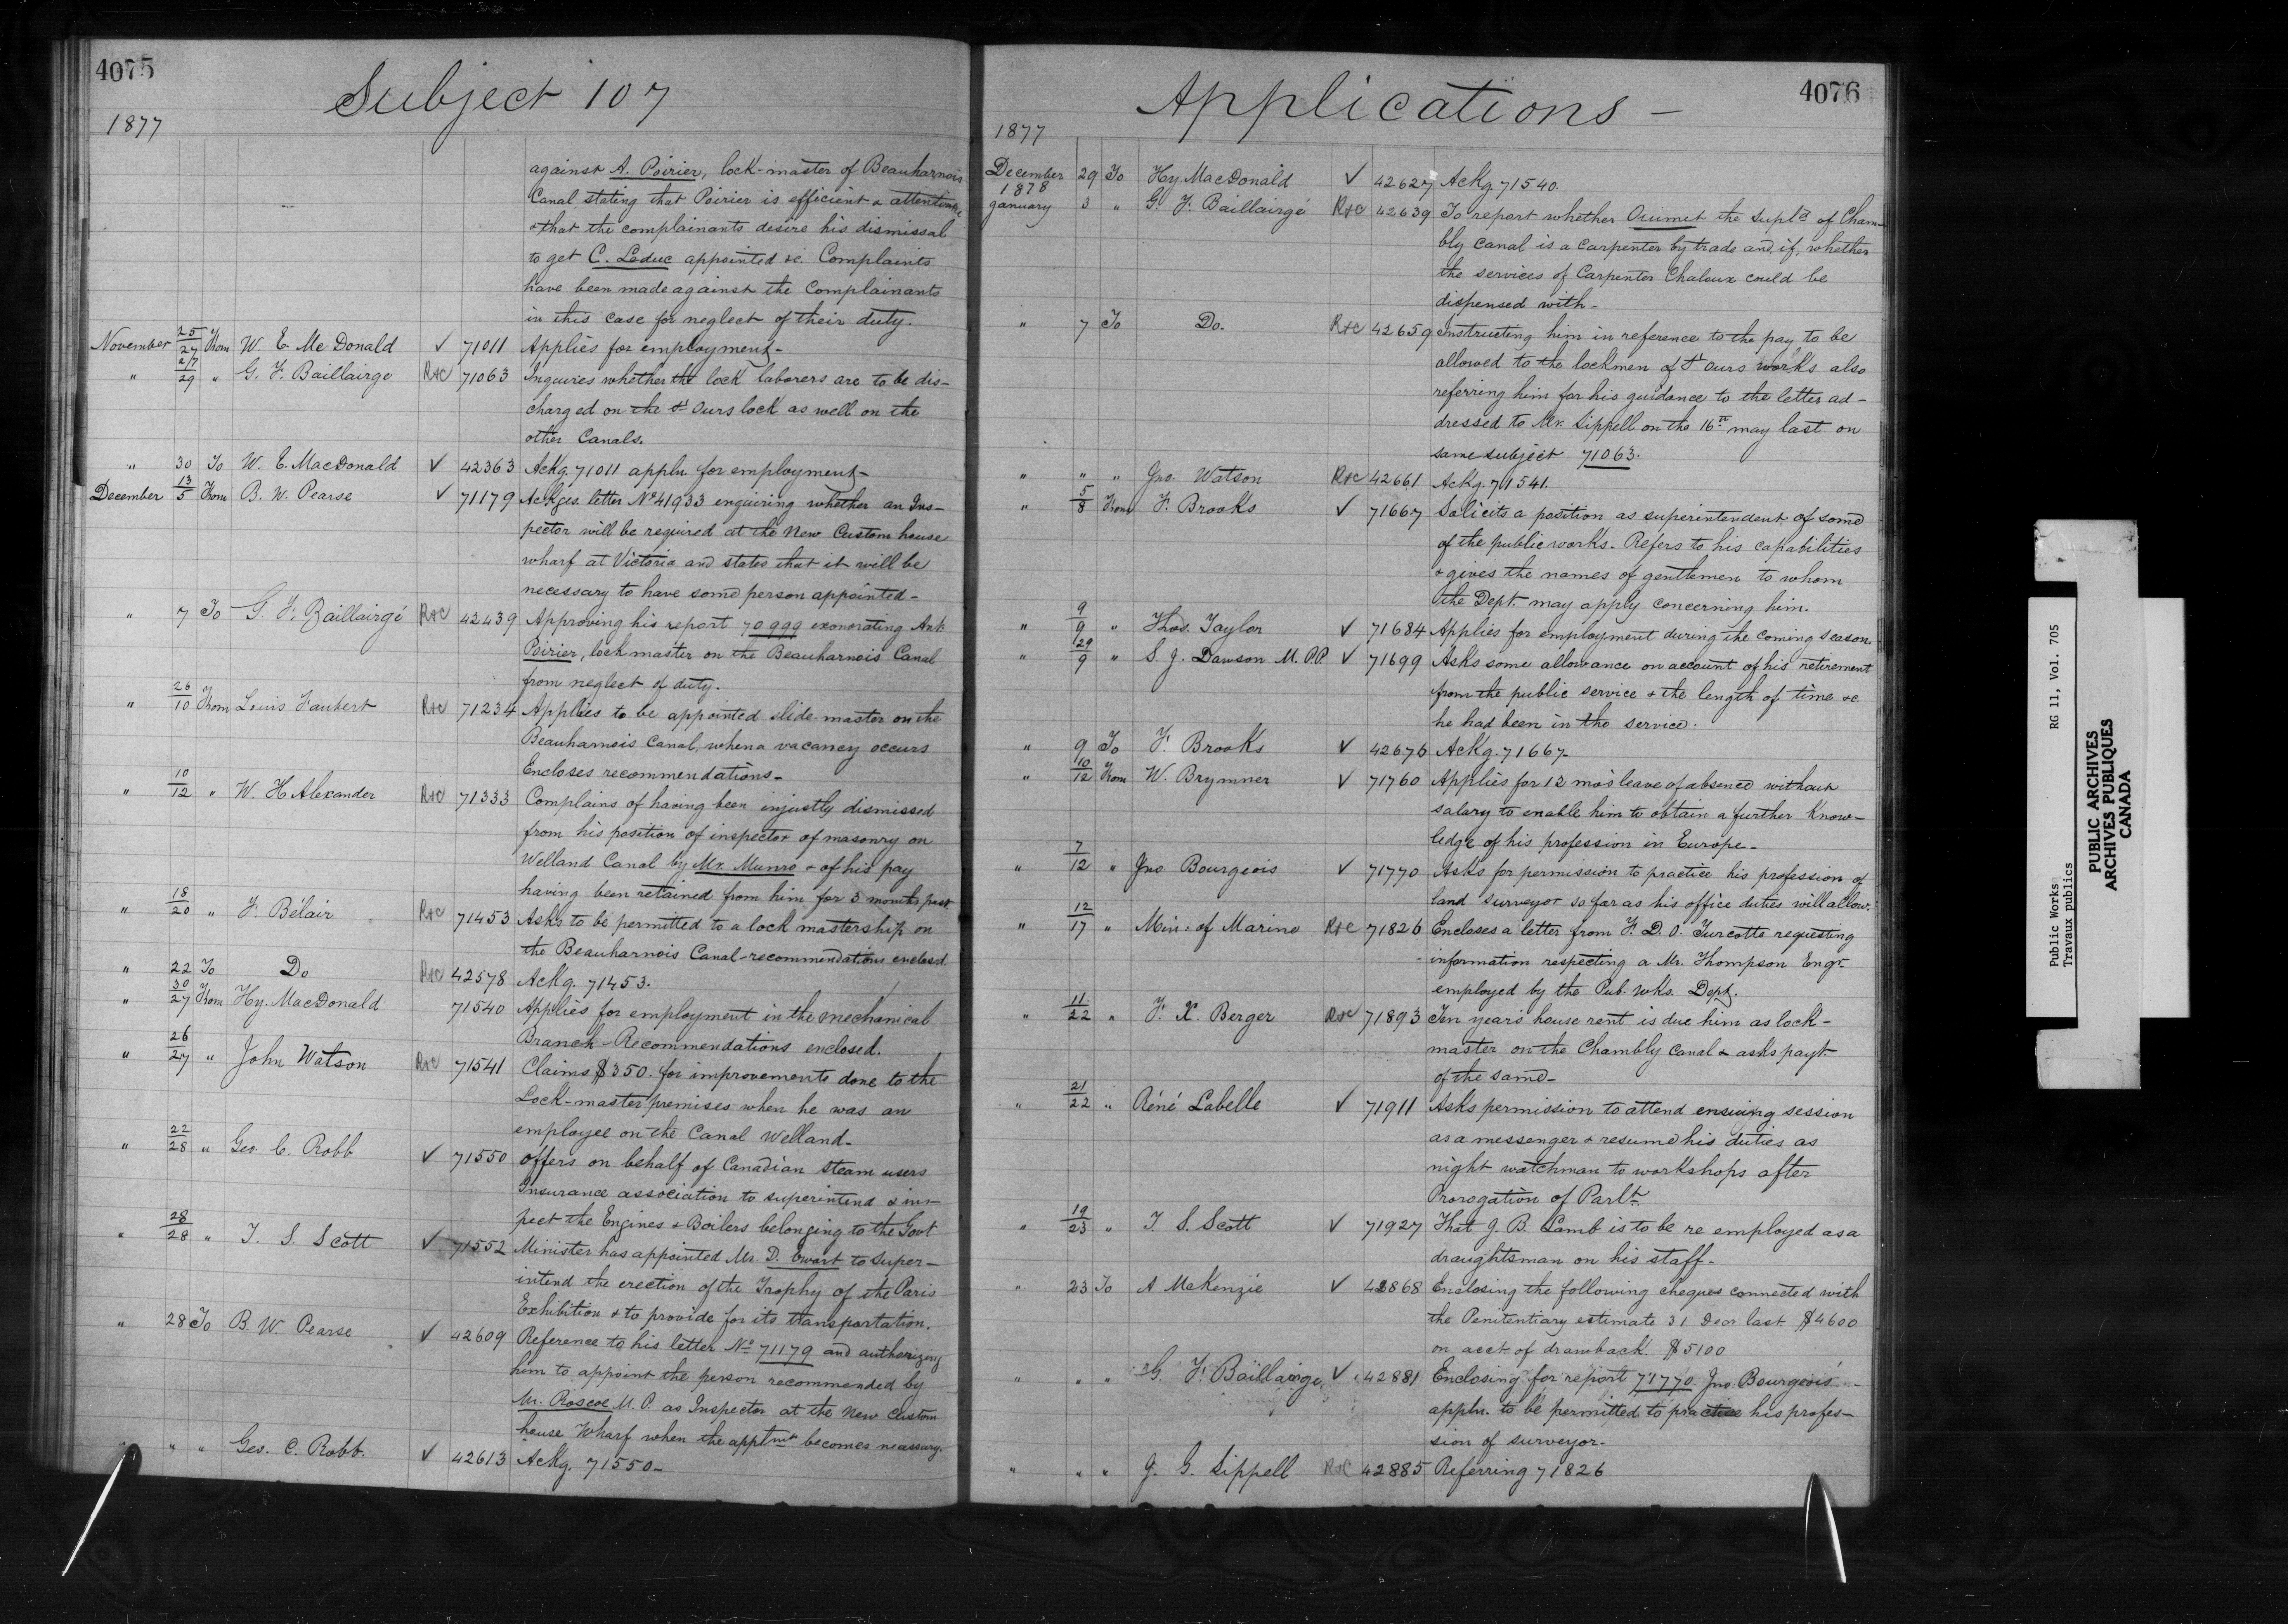 4075
Subject 107
1877
against A. Poirier, lock-master of Beauharnois
Canal stating that Poirier is efficient & attentive
& that the complainants desire his dismissal
to get C. Leduc appointed &c. Complaints
have been made against the Complainants
in this case for neglect of their duty.
November 25/27 From W. E. McDonald ✓ 71011 Applies for employment-
" 27/29 " G. F. Baillairge R&C 71063 Inquires whether the lock laborers are to be dis-
charged on the St Ours lock as well on the
other Canals.
" 30 To W. E. MacDonald ✓ 42363 Ackg. 71011 appln for employment-
December 13/5 From B. W. Pearse ✓ 71179 Ackges. letter No 41933 enquiring whether an Ins-
pector will be required at the New Custom house
wharf at Victoria and states that it will be
necessary to have some person appointed-
" 7 To G. F. Baillairgé R&C 42439 Approving his report 70999 exonerating Ant.
Poirier, lock master on the Beauharnois Canal
from neglect of duty.
" 26/10 From Louis Faubert R&C 71234 Applies to be appointed slide-master on the
Beauharnois Canal, when a vacancy occurs
Encloses recommendations-
" 10/12 " W. H Alexander R&C 71333 Complains of having been injustly dismissed
from his position of inspector of masonry on
Welland Canal by Mr. Munro & of his pay
having been retained from him for 3 months past
" 18/20 " F. Bélair R&C 71453 Asks to be permitted to a lock mastership on
the Beauharnois Canal-recommendations enclosed.
" 22 To Do R&C 42578 Ackg. 71453.
" 30/27 From Hy. MacDonald 71540 Applies for employment in the mechanical
Branch-Recommendations enclosed.
" 26/27 " John Watson R&C 71541 Claims $350. for improvements done to the
Lock-master premises when he was an
employee on the Canal Welland-
" 22/28 " Geo. C. Robb ✓ 71550 offers on behalf of Canadian steam users
Insurance association to superintend & ins-
pect the Engines & Boilers belonging to the Govt
" 28/28 " T. S. Scott ✓ 71552 Minister has appointed Mr. D. Ewart to super-
intend the erection of the Trophy of the Paris
Exhibition & to provide for its transportation.
" 28 To B. W. Pearse ✓ 42609 Reference to his letter No 71179 and authorizing
him to appoint the person recommended by
Mr. Roscoe M. P. as Inspector at the New Custom
house Wharf when the apptmnt becomes necessary.
" " " Geo. C. Robb. ✓ 42613 Ackg. 71550-
4076
Applications-
1877
December 29 To Hy MacDonald ✓ 42627 Ackg. 71540.
1878
January 3 " G. F. Baillairgé R&C 42639 To report whether Oumet the Suplt of Cham-
bly Canal is a carpenter by trade and, if, whether
the services of Carpenter Chaloux could be
dispensed with-
" 7 To Do. R&C 42659 Instructing him in reference to the pay to be
allowed to the lockmen of St Ours works also
referring him for his guidance to the letter ad-
dressed to Mr. Sippell on the 16th may last on
same subject 71063.
" " " Jno. Watson R&C 42661 Ackg. 71541.
" 5/8 From F. Brooks ✓ 71667 Solicits a position as superintendent of some
of the public works. Refers to his capabilities
& gives the names of gentlemen to whom
the Dept. may apply concerning him.
" 9/9 " Thos. Taylor ✓ 71684 Applies for employment during the coming season.
" 29/9 " S. J. Dawson M. P.P. ✓ 71699 Asks some allowance on account of his retirement
from the public service & the length of time &c
he had been in the service.
" 9 To F. Brooks ✓ 42676 Ackg. 71667-
" 10/12 From W. Brymner ✓ 71760 Applies for 12 mos leave of absence without
salary to enable him to obtain a further Know-
ledge of his profession in Europe-
" 7/12 " Jno Bourgeois ✓ 71770 Asks for permission to practice his profession of
land surveyor so far as his office duties will allow.
" 12/17 " Min: of Marine R&C 71826 Encloses a letter from F. D. O. Turcotte requesting
information respecting a Mr. Thompson Engr
employed by the Pub. wks. Dept.
" 11/22 " F. X. Berger R&C 71893 Ten years house rent is due him as lock-
master on the Chambly Canal & asks payt
of the same-
" 21/22 " Réné Labelle ✓ 71911 Asks permission to attend ensuing session
as a messenger & resume his duties as
night watchman to workshops after
Prorogation of Parlt
" 19/23 " T. S. Scott ✓ 71927 That J. B. Lamb is to be re employed as a
draughtsman on his staff-
" 23 To A McKenzie ✓ 42868 Enclosing the following cheques connected with
the Penitentiary estimate 31 Decr last $4600
on acct of drawback $5100
" " " G. F. Baillairge ✓ 42881 Enclosing for report 71770. Jno. Bourgeois'
appln. to be permitted to practice his profes-
sion of surveyor-
" " " J. G. Sippell R&C 42885 Referring 71826
Public Works RG 11, Vol. 705
Travaux publics
PUBLIC ARCHIVES
ARCHIVES PUBLIQUES
CANADA